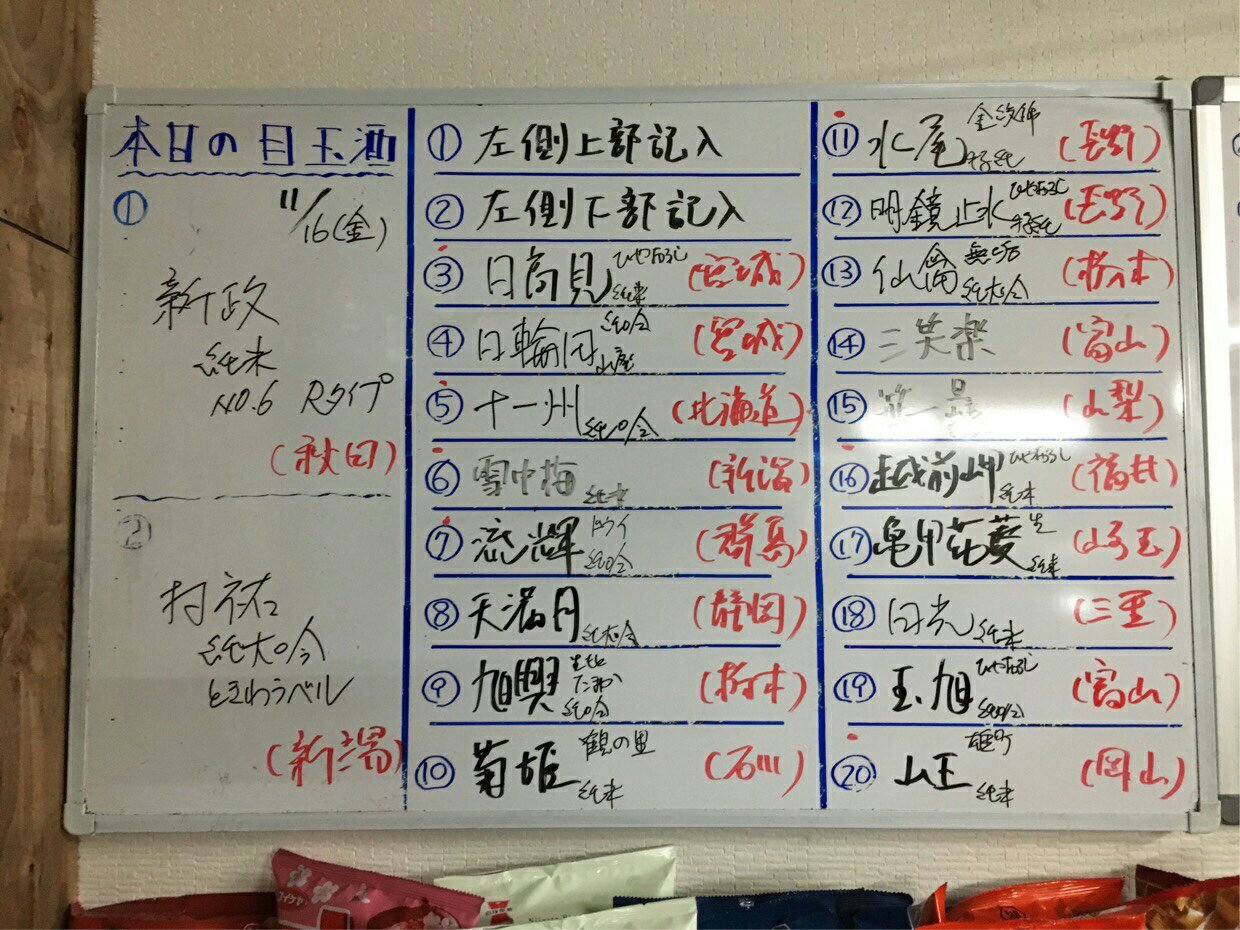 本日の目玉酒
①
11/16(金)
新政
純米
NO.6 Rタイプ
(秋田)
②
村祐
純大吟
ときわラベル
(新潟)
① 左側上部記入
② 左側下部記入
③ 日高見 ひやおろし 純米 (宮城)
④ 日輪田 純吟 山廃 (宮城)
⑤ 十一州 純吟 (北海道)
⑥ 雪中梅 純米 (新潟)
⑦ 流輝 純吟 (群馬)
⑧ 天満月 純大吟 (静岡)
⑨ 旭興 生もと たまか 純吟 (栃木)
⑩ 菊姫 鶴の里 純米 (石川)
⑪ 水尾 金紋錦 特純 (長野)
⑫ 明鏡止水 ひやおろし 特純 (長野)
⑬ 仙禽 無垢 純大吟 (栃木)
⑭ 三笑楽 (富山)
⑮ 笹一 (山梨)
⑯ 越前岬 ひやおろし 純米 (福井)
⑰ 亀甲花菱 生 純米 (埼玉)
⑱ 日光 純米 (三重)
⑲ 玉旭 ひやおろし 純吟 (富山)
⑳ 山王 雄町 純米 (岡山)